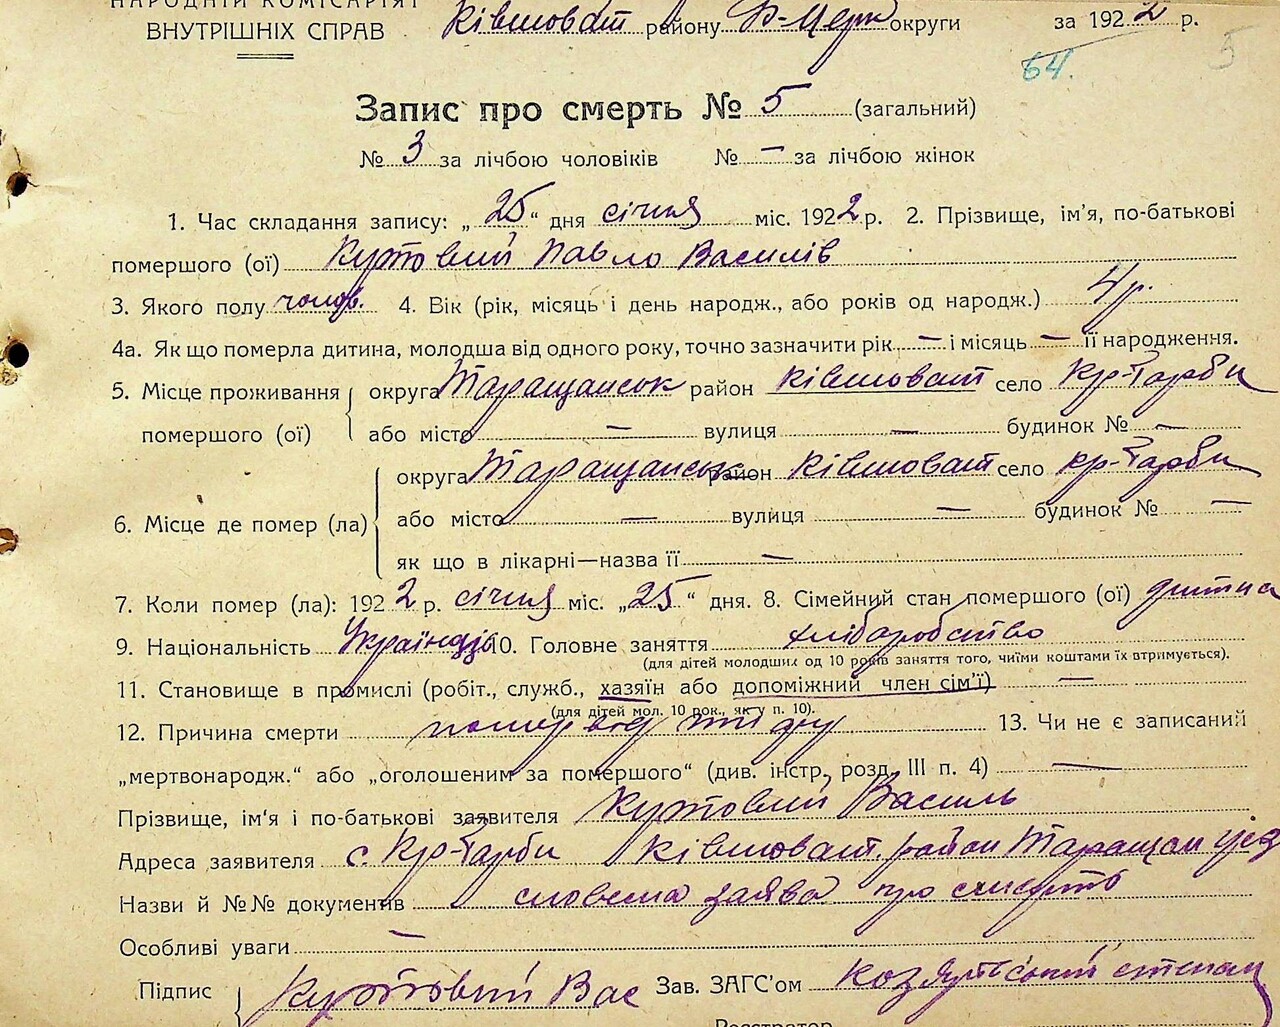 НАРОДНІЙ КОМІСАРІЯТ
ВНУТРІШНІХ СПРАВ Ківшоват району Б-Церк округи за 1922 р.
64. 5
Запис про смерть № 5 (загальний)
№ 3 за лічбою чоловіків № — за лічбою жінок
1. Час складання запису: „25“ дня січня міс. 1922 р. 2. Прізвище, ім’я, по-батькові
помершого (ої) Куттовий Павло Василів
3. Якого полу чолов. 4. Вік (рік, місяць і день народж., або років од народж.) 4 р.
4а. Як що померла дитина, молодша від одного року, точно зазначити рік — і місяць — її народження.
5. Місце проживання округа Таращанськ район Ківшоват село Кр-Гарби
помершого (ої) або місто — вулиця — будинок № —
округа Таращанськ район Ківшоват село Кр-Гарби
6. Місце де помер (ла) або місто — вулиця — будинок № —
як що в лікарні—назва її —
7. Коли помер (ла): 1922 р. січня міс. „25“ дня. 8. Сімейний стан помершого (ої) дитина
9. Національність Українець 10. Головне заняття хліборобство
(для дітей молодших од 10 років заняття того, чиїми коштами їх втримується).
11. Становище в промислі (робіт., служб., хазяїн або допоміжний член сім’ї) —
(для дітей мол. 10 рок., як у п. 10).
12. Причина смерти помер від 13. Чи не є записаний
„мертвонародж.“ або „оголошеним за помершого“ (див. інстр, розд. III п. 4) —
Прізвище, ім’я і по-батькові заявителя Куттовий Василь
Адреса заявителя с Кр-Гарби Ківшоват. район Таращан
Назви й №№ документів словесна заява про смерть
Особливі уваги —
Підпис Куттовий Вас Зав. ЗАГС’ом Степан
Реєстратор